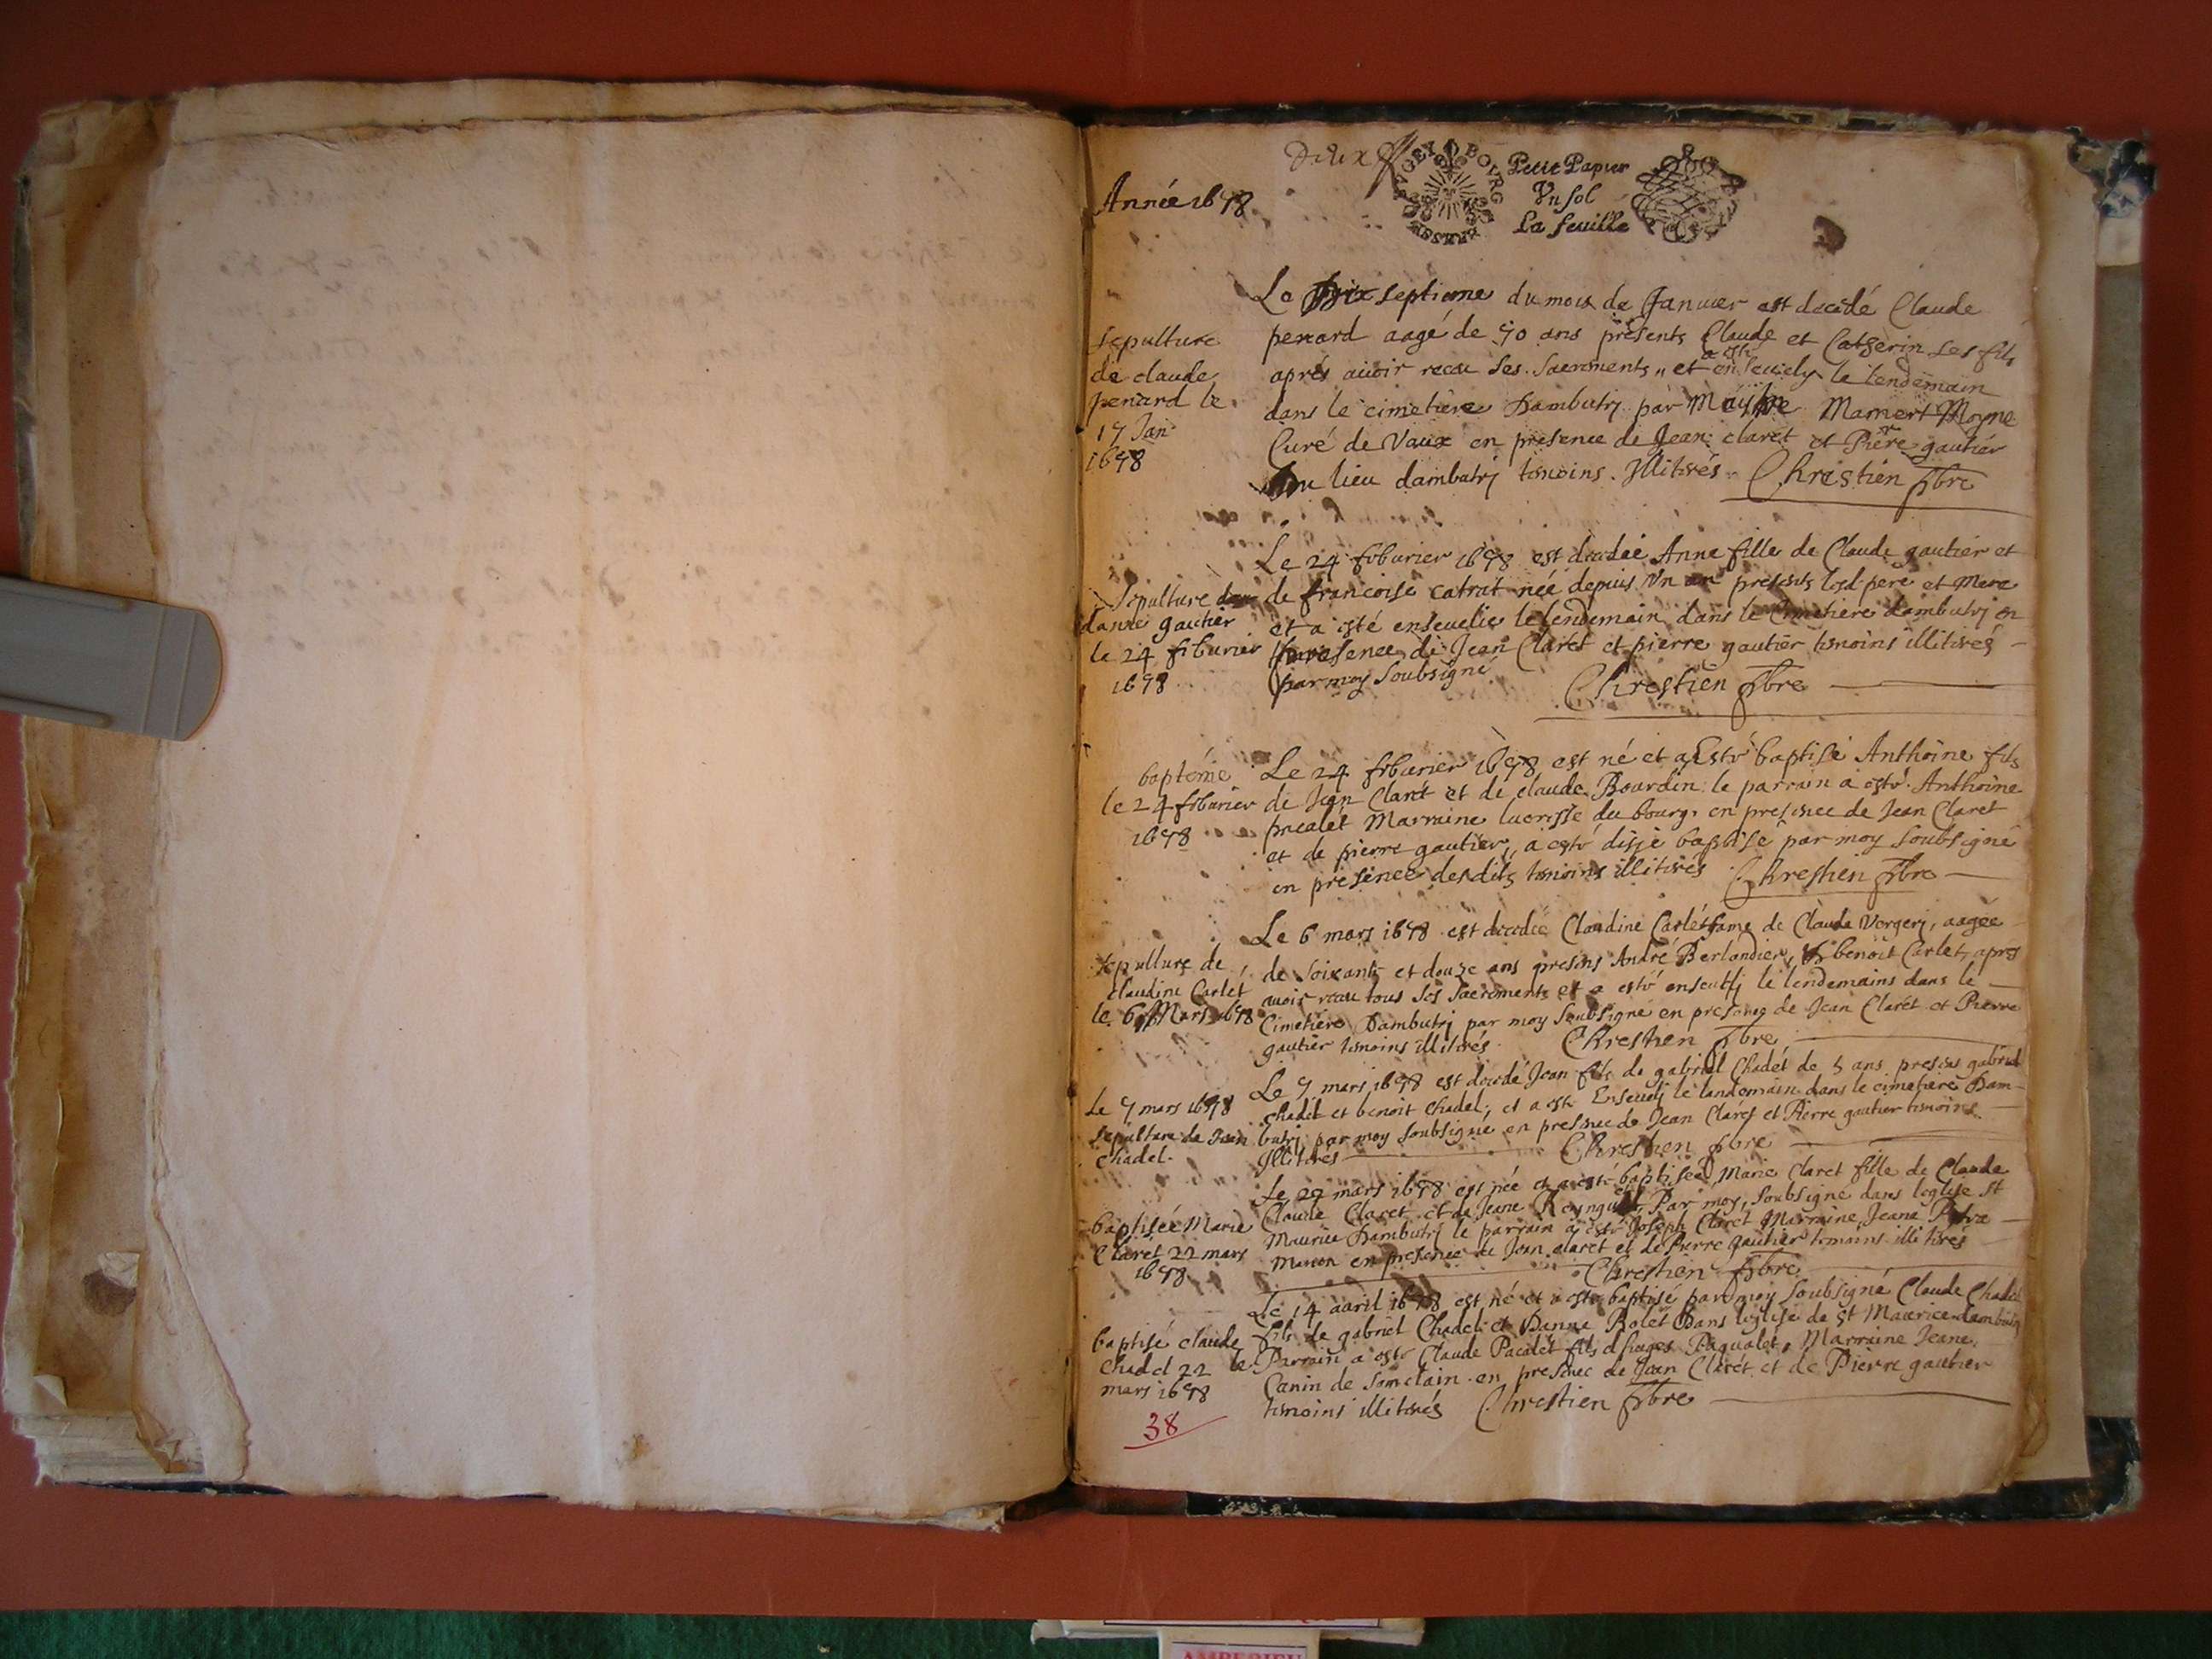 Deux
BVGEY BOVRG BRESSE
Petit Papier
Vn sol
La feuille
Année 1678
Le dix septieme du mois de Januier est decedé Claude
penard aagé de 70 ans presents Claude et Catherin ses fils
après auoir receu ses Sacrements et a esté enseuely le lendemain
dans le cimetiere Dambutrj par Maistre Mamert Moyne
Curé de Vaux en presence de Jean claret et Pierre gautier
du lieu dambutrj temoins Illiterés Chrestien pbre
sepulture
de claude
penard le
17 Jan
1678
Le 24 feburier 1678 est decedée Anne fille de Claude gautier et
de francoise catrat née depuis Vn an presents lesd pere et Mere
et a esté enseuelie le lendemain dans le Cimetiere dambutrj en
presence de Jean Claret et pierre gautier temoins illiterés
par moy soubsigné Chrestien pbre
Sepulture
danne gautier
le 24 feburier
1678
Le 24 feburier 1678 est né et a Esté baptisé Anthoine fils
de Jean Claret et de claude Bourdin le parrain a esté Anthoine
pacalet Marraine lucresse du bourg en presence de Jean Claret
et de pierre gautier, a esté disje baptisé par moy soubsigné
en presence desdits temoins illiterés Chrestien pbre
baptéme
le 24 feburier
1678
Le 6 mars 1678 est decedée Claudine Carlet fame de Claude Vergerj, aagée
de soixante et douze ans presens André Berlandier, benoit Carlet, apres
auoir receu tous ses sacrements et a esté enseuelj le lendemains dans le
Cimetiere Dambutrj par moy soubsigné en presence de Jean Claret et Pierre
gautier temoins illiterés. Chrestien pbre
sepulture de
claudine Carlet
le 6 Mars 1678
Le 7 mars 1678 est decedé Jean fils de gabriel Chadel de 5 ans presens gabriel
chadel et benoit chadel, et a esté Enseuelj le landemain dans le cimetiere Dam-
butrj par moy soubsigné en presence de Jean Claret et Pierre gautier temoins
Illiterés Chrestien pbre
Le 7 mars 1678
sepulture de Jean
chadel.
Le 22 mars 1678 est née et a esté baptisée Marie Claret fille de Claude
Claude Claret et de Jeane Par moy, soubsigné dans leglise St
Maurice Dambutrj le parrain a esté Joseph Claret Marraine Jeane
en presence de Jean claret et de Pierre gautier temoins illiterés
Chrestien pbre
baptisée Marie
Claret 22 mars
1678
Le 14 auril 1678 est né et a esté baptisé par moy soubsigné Claude Chadel
fils de gabriel Chadel et Danne Rolet Dans leglise de St Maurice dambutrj
le Parrain a esté Claude Pacalet fils Paqualet, Marraine Jeane
Canin de en presence de Jean Claret et de Pierre gautier
temoins illiterés Chrestien pbre
baptisé claude
Chadel 22
mars 1678
38